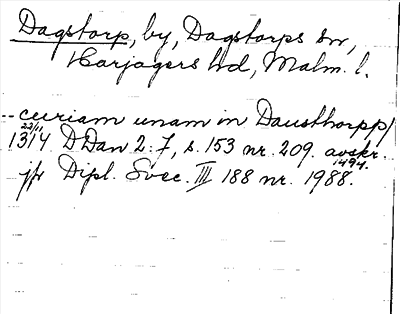 Dagstorp, by, Dagstorps sn,
Harjagers hd, Malm. l.
-- curiam unam in Dausthorpp/
22/11
1314 DDan 2:7, s. 153 nr. 209. avskr. 1494.
jfr Dipl. Svec. III 188 nr. 1988.